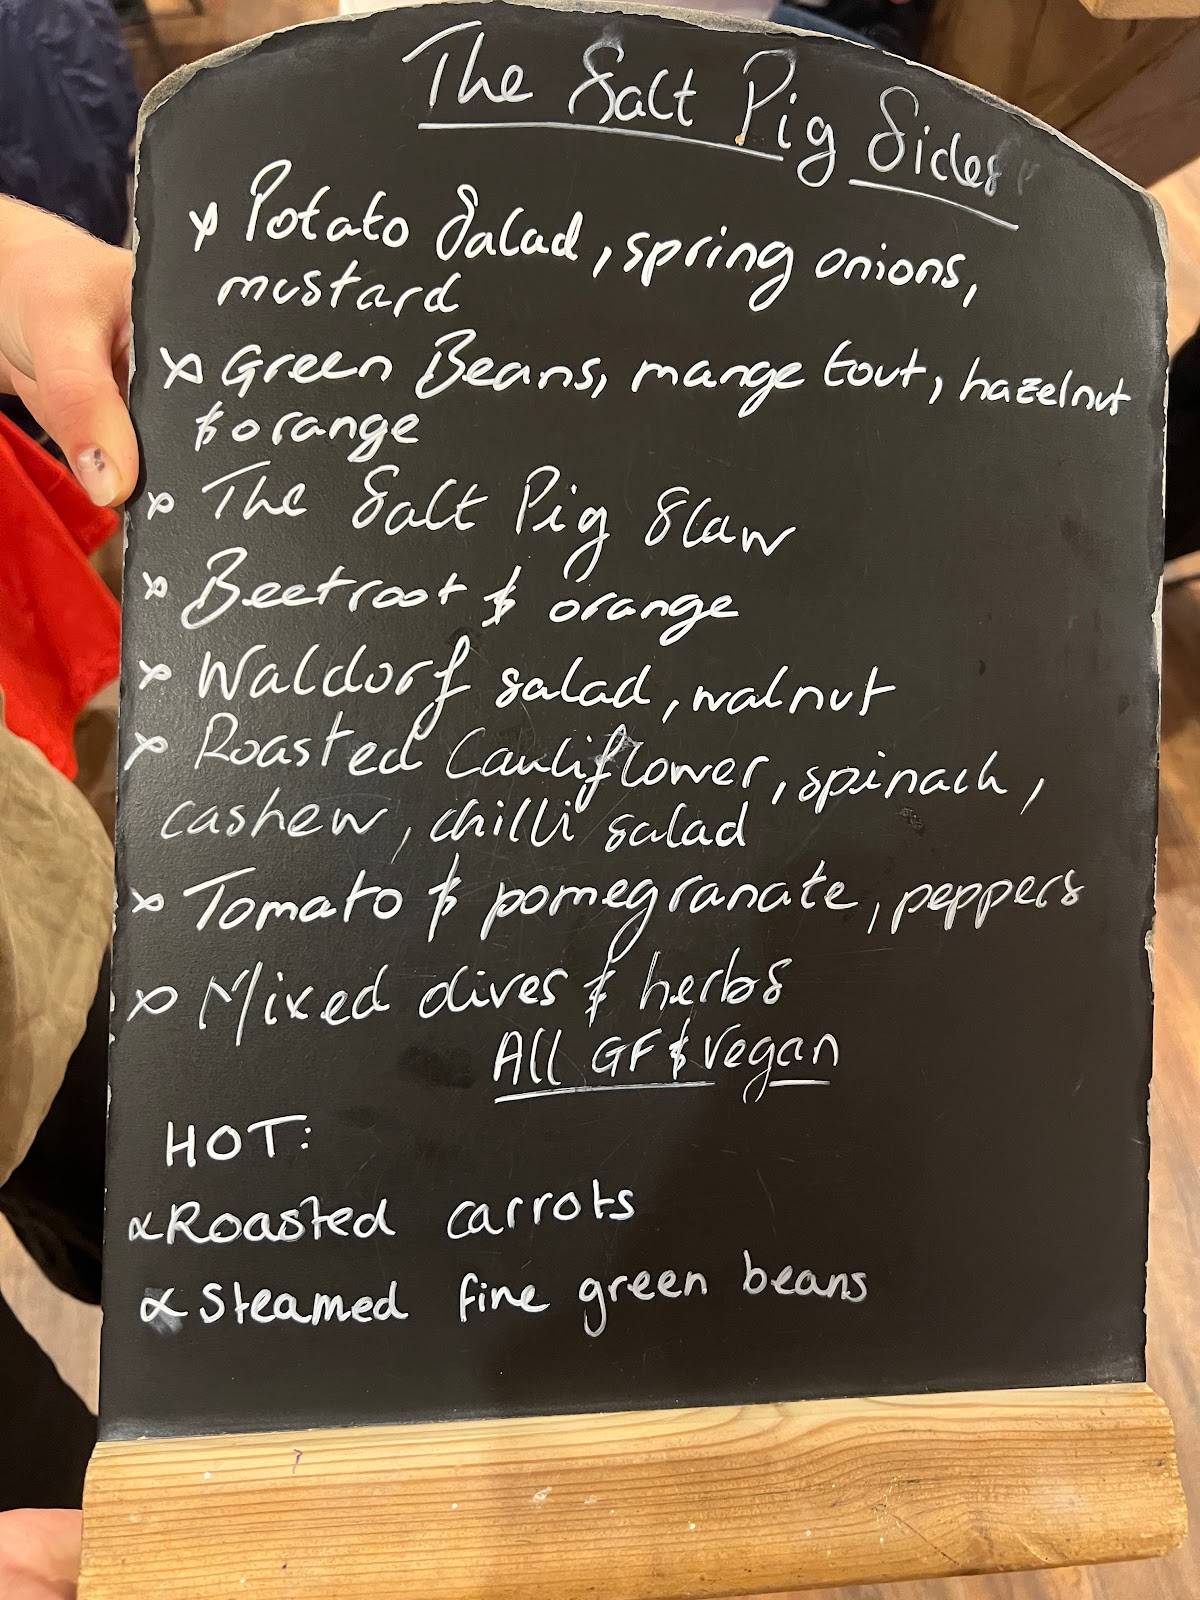 The Salt Pig Sides
x Potato Salad, spring onions,
mustard
x Green Beans, mange tout, hazelnut
& orange
x The Salt Pig Slaw
x Beetroot & orange
x Waldorf salad, walnut
x Roasted Cauliflower, spinach,
cashew, chilli salad
x Tomato & pomegranate, peppers
x Mixed olives & herbs
All GF & Vegan
HOT:
x Roasted carrots
x Steamed fine green beans